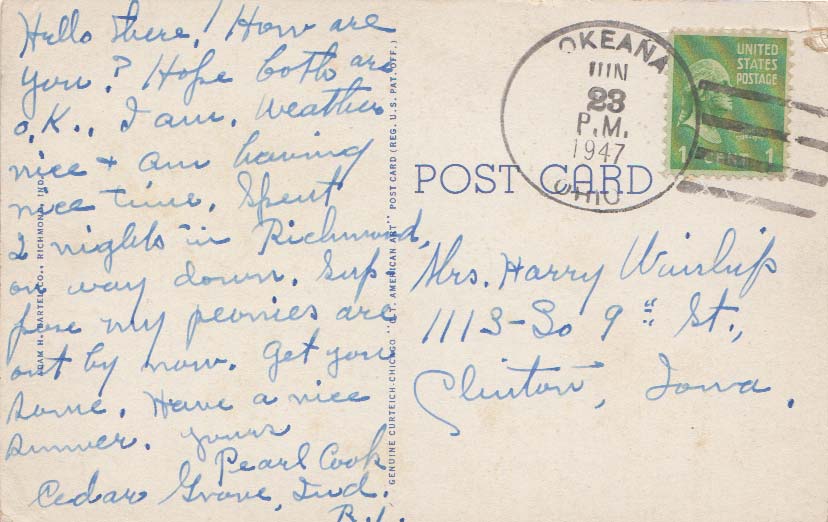 Hello there! How are
you? Hope both are
O.K., I am. Weather
nice + am having
nice time. Spent
2 nights in Richmond,
on way down. Sup
pose my peonies are
out by now. Get you
some. Have a nice
summer. yours
Pearl Cook
Cedar Grove, Ind.
R.1.
ADAM H. BARTEL CO., RICHMOND, IND.
GENUINE CURTEICH-CHICAGO "C.T. AMERICAN ART" POST CARD (REG. U.S. PAT. OFF.)
OKEANA
JUN
23
P.M.
1947
OHIO
UNITED
STATES
POSTAGE
1 CENT 1
POST CARD
Mrs. Harry Winship
1113-So 9th St.,
Clinton, Iowa.